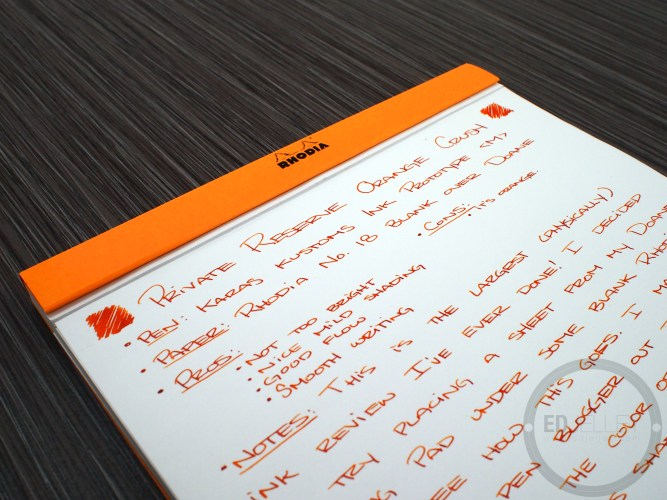 RHODIA
PRIVATE RESERVE ORANGE CRUSH
• PEN: KARAS KUSTOMS INK PROTOTYPE <M>
• PAPER: RHODIA NO. 18 BLANK OVER DOANE
• PROS: • NOT TOO BRIGHT
• NICE MILD SHADING
• GOOD FLOW
• SMOOTH WRITING
• CONS: • IT'S ORANGE.
• NOTES: THIS IS THE LARGEST (PHYSICALLY)
INK REVIEW I'VE EVER DONE! I DECIDED
TRY PLACING A SHEET FROM MY DOANE
PAD UNDER SOME BLANK
SEE HOW THIS GOES. I
PEN BLOGGER OUT
THE COLOR